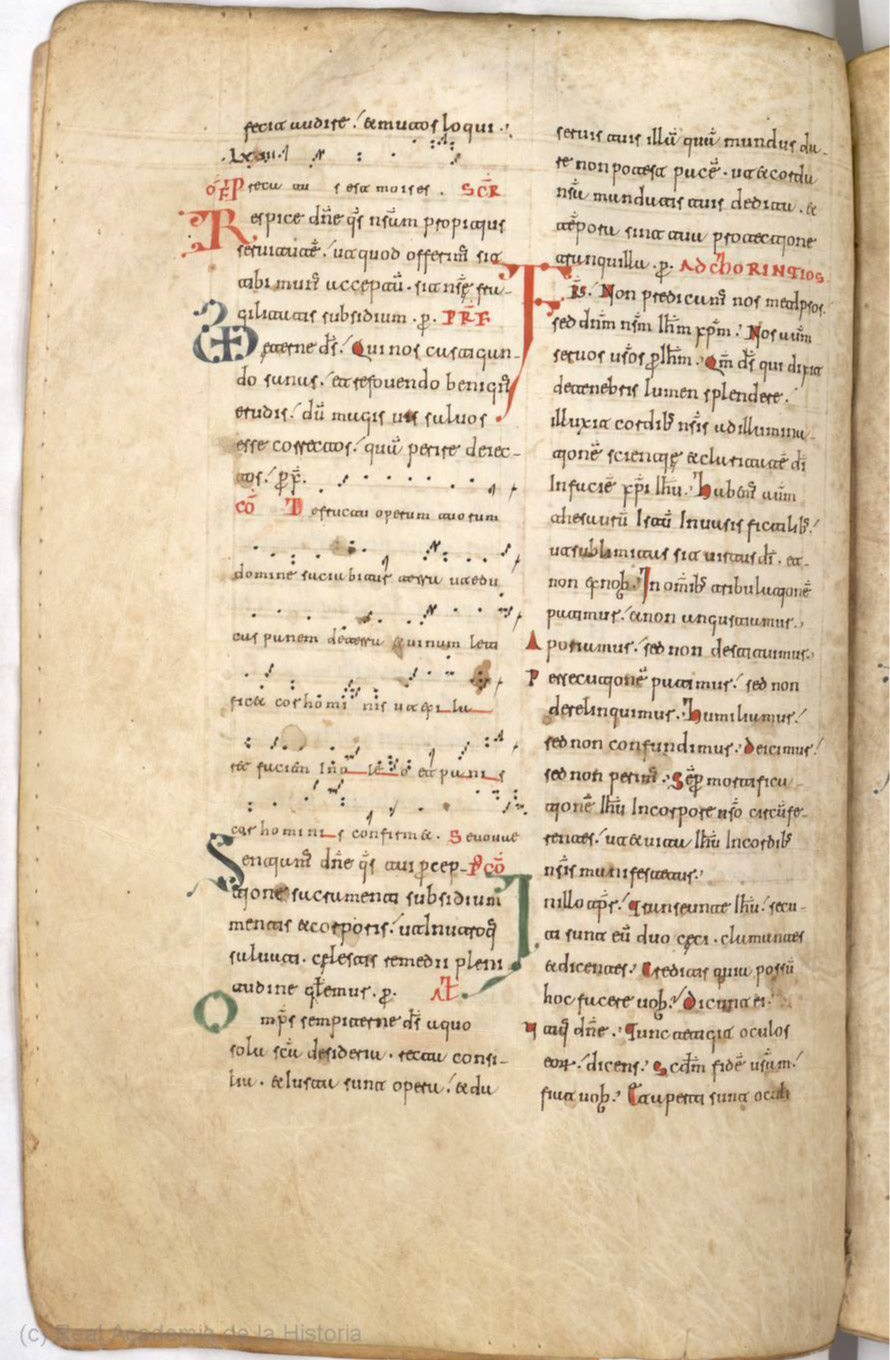 fecit audire / & mutos loqui
ŌF Precatus est moises . SCR
Respice dn̄e q̄s nr̄am propitius
servitutē / ut quod offerim᷒ sit
tibi mun᷒ acceptū . sit nr̄ę fra-
gilitatis subsidium . p̱. PRF
Ęterne ds̄ / Qui nos castigan-
do sanas / et refovendo benign᷒
erudis / dū magis vis salvos
esse correctos / quā perire deiec-
tos / p̱ xp̄.
cō De fructu operum tuorum
domine saciabitur terra ut edu
cas panem de terra & vinum leti
ficet cor homi nis ut exila
ret faciem In o le o et panis
cor hominis confirm&. Seuouae
Sentiam᷒ dn̄e q̄s tui p̱cep- P̄ cō
tione sacramenti subsidium
mentis & corporis / ut In utroq̄
salvati . cęlestis remedii pleni
tudine gl̄emur . p̱. Al̄
Omp̄s sempiterne ds̄ a quo
sola scā desideria . recta consi-
lia . & Iusta sunt opera / & da
servis tuis illā quā mundus da-
re non potest pacē . ut & corda
nr̄a mandatis tuis dedita . &
tēpora sint tua protectione
tranquilla . p̱. AD CHORINTIOS
FR̄S / Non predicam᷒ nos metipsos /
sed dnm̄ nr̄m Ih̄m xp̄m / Nos autm̄
servos vr̄os p̱ Ih̄m . Qm̄ ds̄ qui dixit
de tenebris lumen splendere /
illuxit cordib᷒ nr̄is ad illumina-
tionē scientię & claritatē dī
In faciē xp̄i Ih̄u . Habem᷒ autm̄
thesaurū Istū In vasis fictilib᷒ /
ut sublimitas sit virtus dī . et
non ex nob̄ . In omīb᷒ tribulationē
patimur / & non angustiamur .
Aporiamur / sed non destituimur .
Persecutionē patimur / sed non
derelinquimur . Humiliamur /
sed non confundimur . Deicimur /
sed non perim᷒ . Sēp̱ mortifica-
tionē Ih̄u In corpore nr̄o circūfe-
rentes / ut & vita Ih̄u In cordib᷒
nr̄is manifestetur .
In illo tp̄r / Transeunte Ih̄u / secu-
ti sunt eū duo cęci . clamantes
& dicentes / Creditis quia possū
hoc facere vob̄ / Dicunt ei /
utiq̄ dn̄e . Tunc tetigit oculos
eor̄ / dicens / Scdm̄ fidē vr̄am /
fiat vob̄ . Et aperti sunt oculi
(c) Real Academia de la Historia